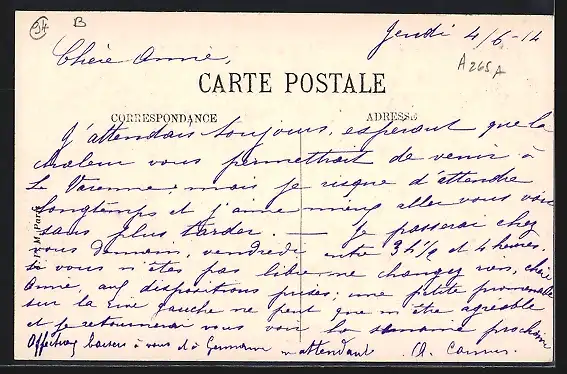 94 B
Jeudi 4/6-14
Chère Annie,
A265A
CARTE POSTALE
CORRESPONDANCE ADRESSE
J'attendais toujours, esperant que la
chaleur vous permettrait de venir à
La Varenne; mais je risque d'attendre
longtemps et j'aime mieux aller vous voir
sans plus tarder. — Je passerai chez
vous demain, vendredi entre 3h ½ et 4 heures.
Si vous n'êtes pas libre ne changez rien, chère
Annie, aux dispositions prises; une petite promenade
sur la rive gauche ne peut que m'être agréable
et je retournerai vous voir la semaine prochaine
Affectueux baisers à vous et à Germaine en attendant A.
Paris